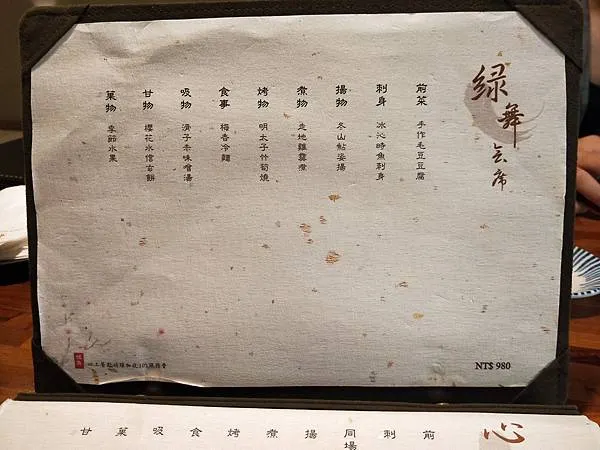 綠舞会席
前菜 手作毛豆豆腐
刺身 冰沁時魚刺身
揚物 冬山鮎姿揚
煮物 走地雞羹煮
烤物 明太子竹筍燒
食事 梅香冷麵
吸物 滑子赤味噌湯
甘物 櫻花水信玄餅
菓物 季節水果
以上餐點須加收10%服務費
NT$ 980
心
前
刺
揚
同場
煮
烤
食
吸
菓
甘